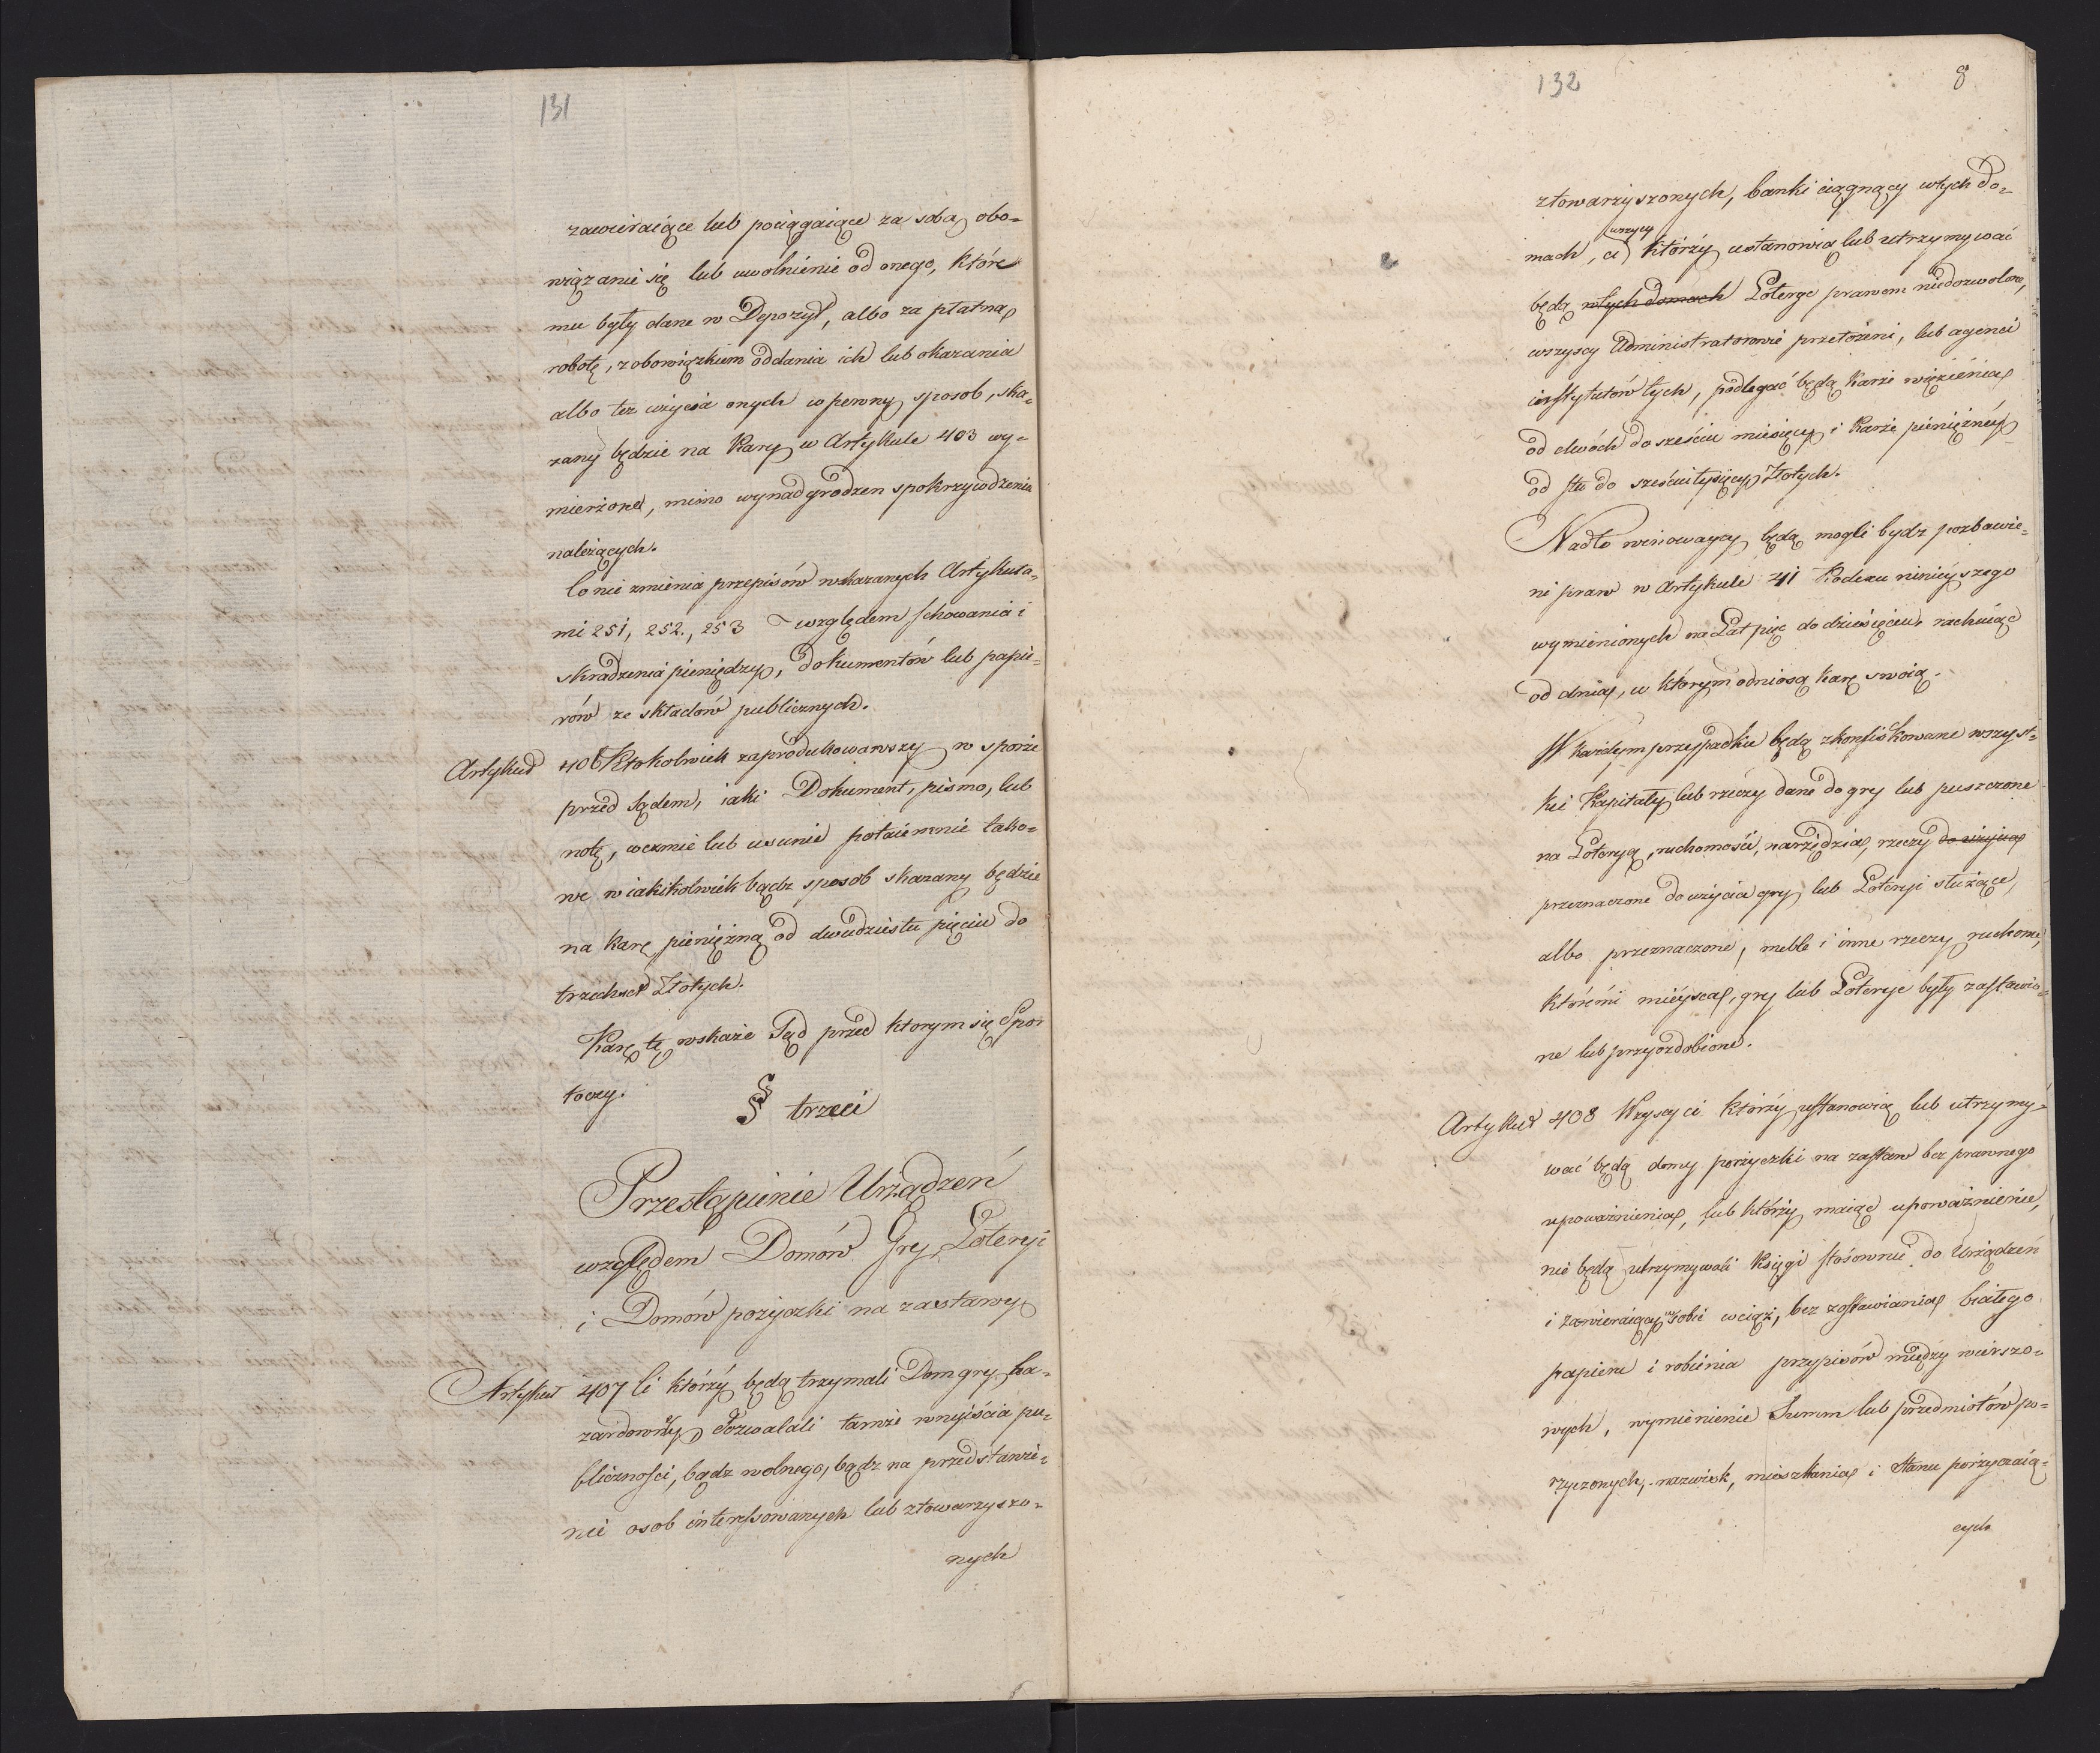 131
zawieraiące lub pociągaiące za sobą obo=
wiązanie się lub uwolnienie od onego, które
mu były dane w Depozyt, albo za płatną
robotę, z obowiązkiem oddania ich lub okazania
albo też użycia onych w pewny sposob, ska=
zany będzie na Kary w Artykule 403 wy=
mierzone, mimo wynadgrodzen spokrzywdzenia
należących.
Co nie zmienia przepisów wskazanych Artykuła=
mi 251, 252., 253 względem schowania i
skradzenia pieniędzy, dokumentów lub papie=
rów ze składów publicznych.
Artykuł 406 Ktokolwiek zaprodukowawszy w sporze
przed Sądem, iaki Dokument, pismo, lub
notę, weźmie lub usunie potaiemnie tako=
we w iakikolwiek bądz sposob skazany będzie
na karę pieniężną od dwudziestu pięciu do
trzechset Złotych.
Karę tę wskaże Sąd przed ktorym się Spor
toczy.
§ trzeci
Przestąpienie Urządzeń
względem Domów Gry, Loteryi
i Domów pożyczki na zastawy
Artykuł 407 Ci którzy będą trzymali Dom gry ha=
zardowny, dozwalali tamże wnyiścia pu=
bliczności, bądz wolnego, bądz na przedstawie=
nie osob interessowanych lub ztowarzyszo=
nych
132
8
ztowarzyszonych, banki ciągnący w tych do=
wszyscy
mach, ci którzy ustanowią lub utrzymywać
będą w tych domach Loterye prawem niedozwolone,
wszyscy Administratorowie przełożeni, lub agenci
instytutów tych, podlegać będą karze więzienia
od dwóch do sześciu miesięcy i karze pieniężney
od stu do sześciu tysięcy Złotych.
Nadto winowaycy będą mogli bydz pozbawie=
ni praw w Artykule 41 Kodexu ninieyszego
wymienionych na Lat pięć do dziesięciu, rachuiąc
od dnia, w którym odniosą karę swoią.
W każdym przypadku będą zkonfiskowane wszyst=
kie Kapitały lub rzeczy dane do gry lub puszczone
na Loteryą, ruchomości, narzędzia, rzeczy do użycia
przeznaczone do użycia gry lub Loteryi służące,
albo przeznaczone, meble i inne rzeczy ruchome,
któremi mieysca, gry lub Loterye były zastawio=
ne lub przyozdobione.
Artykuł 408 Wszyscy ci którzy ustanowią lub utrzymy=
wać będą domy pożyczki na zastaw bez prawnego
upoważnienia, lub którzy maiąc upoważnienie,
nie będą utrzymywali Księgi stosownie do Urządzeń
i zawieraiącey w sobie w ciąż, bez zostawiania białego
papieru i robienia przypisów między wierszo=
wych, wymienienie Summ lub przedmiotów po=
życzonych, nazwisk, mieszkania i stanu pożyczaią=
cych